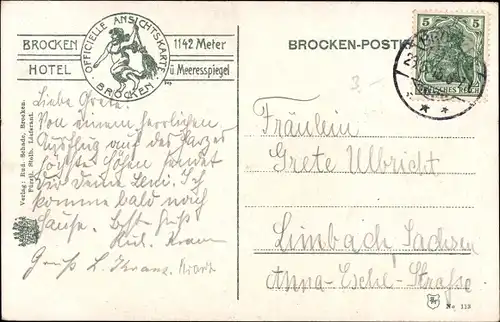 BROCKEN 1142 Meter
HOTEL ü. Meeresspiegel
OFFICIELLE ANSICHTSKARTE
BROCKEN
BROCKEN-POSTK
5 5
DEUTSCHES REICH
3,-
Verlag: Rud. Schade, Brocken.
Fürstl. Stolb. Lieferant.
Liebe Grete.
Von einem herrlichen
Ausflug auf des Harzes
höchste Höhen sendet
Dir Deine Leni. Ich
komme bald nach
Hause. Besten Gruß
Gruß L. Kranz.
Fräulein
Grete Ulbricht
Limbach, Sachsen
Anna-Esche-Straße
No 113